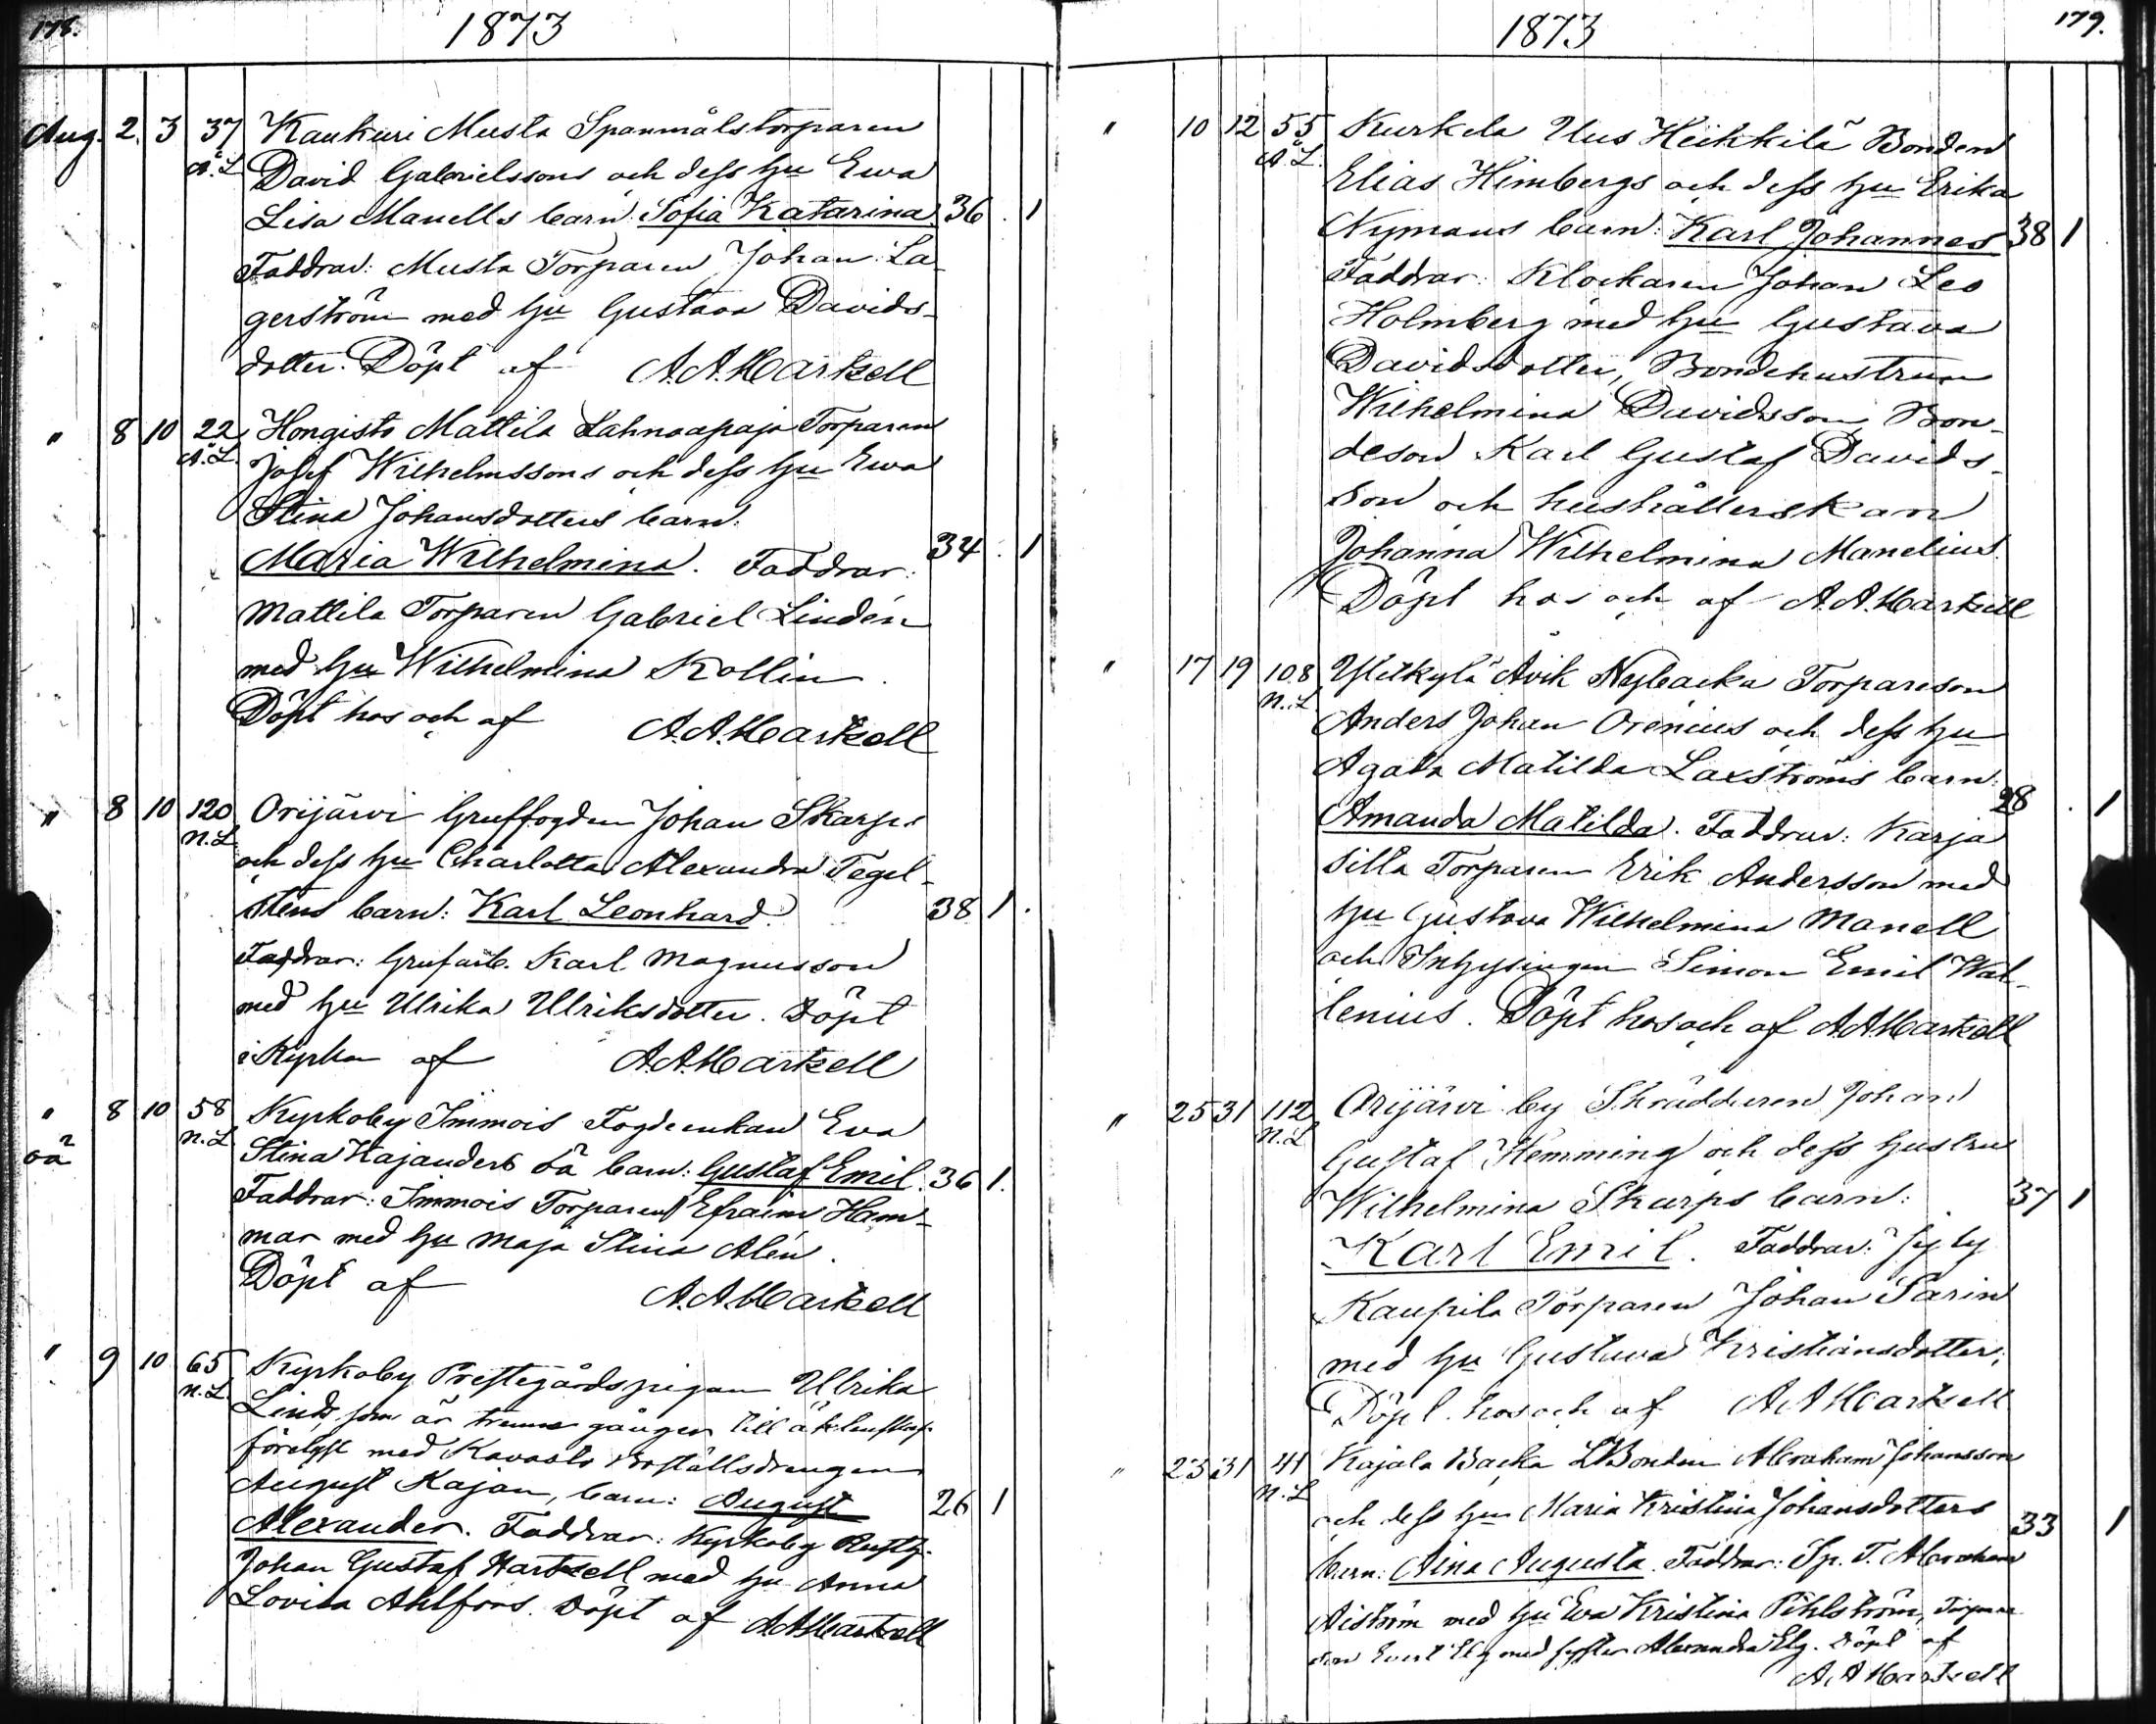 178.
1873
Aug. 2. 3 37 Kaukuri Musta Spanmålstorparen
Å.L. David Gabrielssons och dess hu Ewa
Lisa Manells barn: Sofia Katarina 36 . 1
Faddrar: Musta Torparen Johan La-
gerström med hu Gustava Davids-
dotter. Döpt af A.A. Hartzell
" 8 10 22 Hongisto Mattila Lahnaapaja Torparens
Å.L. Josef Wilhelmssons och dess hu Ewa
Stina Johansdotters barn:
Maria Wilhelmina. Faddrar: 34 . 1
Mattila Torparen Gabriel Lindén
med hu Wilhelmina Kollin.
Döpt hos och af A.A. Hartzell
" 8 10 120 Orijärvi Gruffogden Johan Skarps
N.L. och dess hu Charlotta Alexandra Tegel-
stens barn: Karl Leonhard. 38 1.
Faddrar: Grufarb. Karl Magnusson
med hu Ulrika Ulriksdotter. Döpt
i Kyrkan af A.A. Hartzell
" 8 10 58 Kyrkoby Immois Fogdeenkan Eva
oä N.L. Stina Kajanders oä barn: Gustaf Emil. 36 1.
Faddrar: Immois Torparen Efraim Ham-
mar med hu Maja Stina Alén.
Döpt af A.A. Hartzell
" 9 10 65 Kyrkoby Prestegårdspigan Ulrika
N.L. Linds, som är trenne gånger till äktenskap
förelyst med Kavasto Boställsdrengen
August Kajan, barn: August 26 1
Alexander. Faddrar: Kyrkoby Rusth.
Johan Gustaf Hartzell med hu Anna
Lovisa Ahlfors. Döpt af A.A. Hartzell
179.
1873
" 10 12 55 Kurkela Uus Heikkilä Bonden
Å.L. Elias Himbergs och dess hu Erika
Nymans barn: Karl Johannes 38 1
Faddrar: Klockaren Johan Leo
Holmberg med hu Gustava
Davidsdotter, Bondehustrun
Wilhelmina Davidsson, Bon-
deson Karl Gustaf Davids-
son och hushållerskan
Johanna Wilhelmina Manelius.
Döpt hos och af A.A. Hartzell
" 17 19 108 Ylikylä Avik Nybacka Torpareson
N.L. Anders Johan Orenius och dess hu
Agata Matilda Laxströms barn:
Amanda Matilda. Faddrar: Karja 28 . 1
silta Torparen Erik Andersson med
hu Gustava Wilhelmina Manell
och Inhysingen Simon Emil Wal-
lenius. Döpt hos och af A.A. Hartzell
" 25 31 112 Orijärvi by Skräddaren Johan
N.L. Gustaf Hemming och dess hustru
Wilhelmina Skarps barn: 37 1
Karl Emil. Faddrar: Jyly
Kaupila Torparen Johan Sarin
med hu Gustava Kristiansdotter;
Döpt hos och af A.A. Hartzell
" 25 31 41 Kajala Backa LBonden Abraham Johansson
N.L. och dess hu Maria Kristina Johansdotters
barn: Aina Augusta. Faddrar: Sp. T. Abraham 33 1
Aiström med hu Eva Kristina Pihlström,
Evert Elg med syster Alexandra Elg. Döpt af
A.A. Hartzell